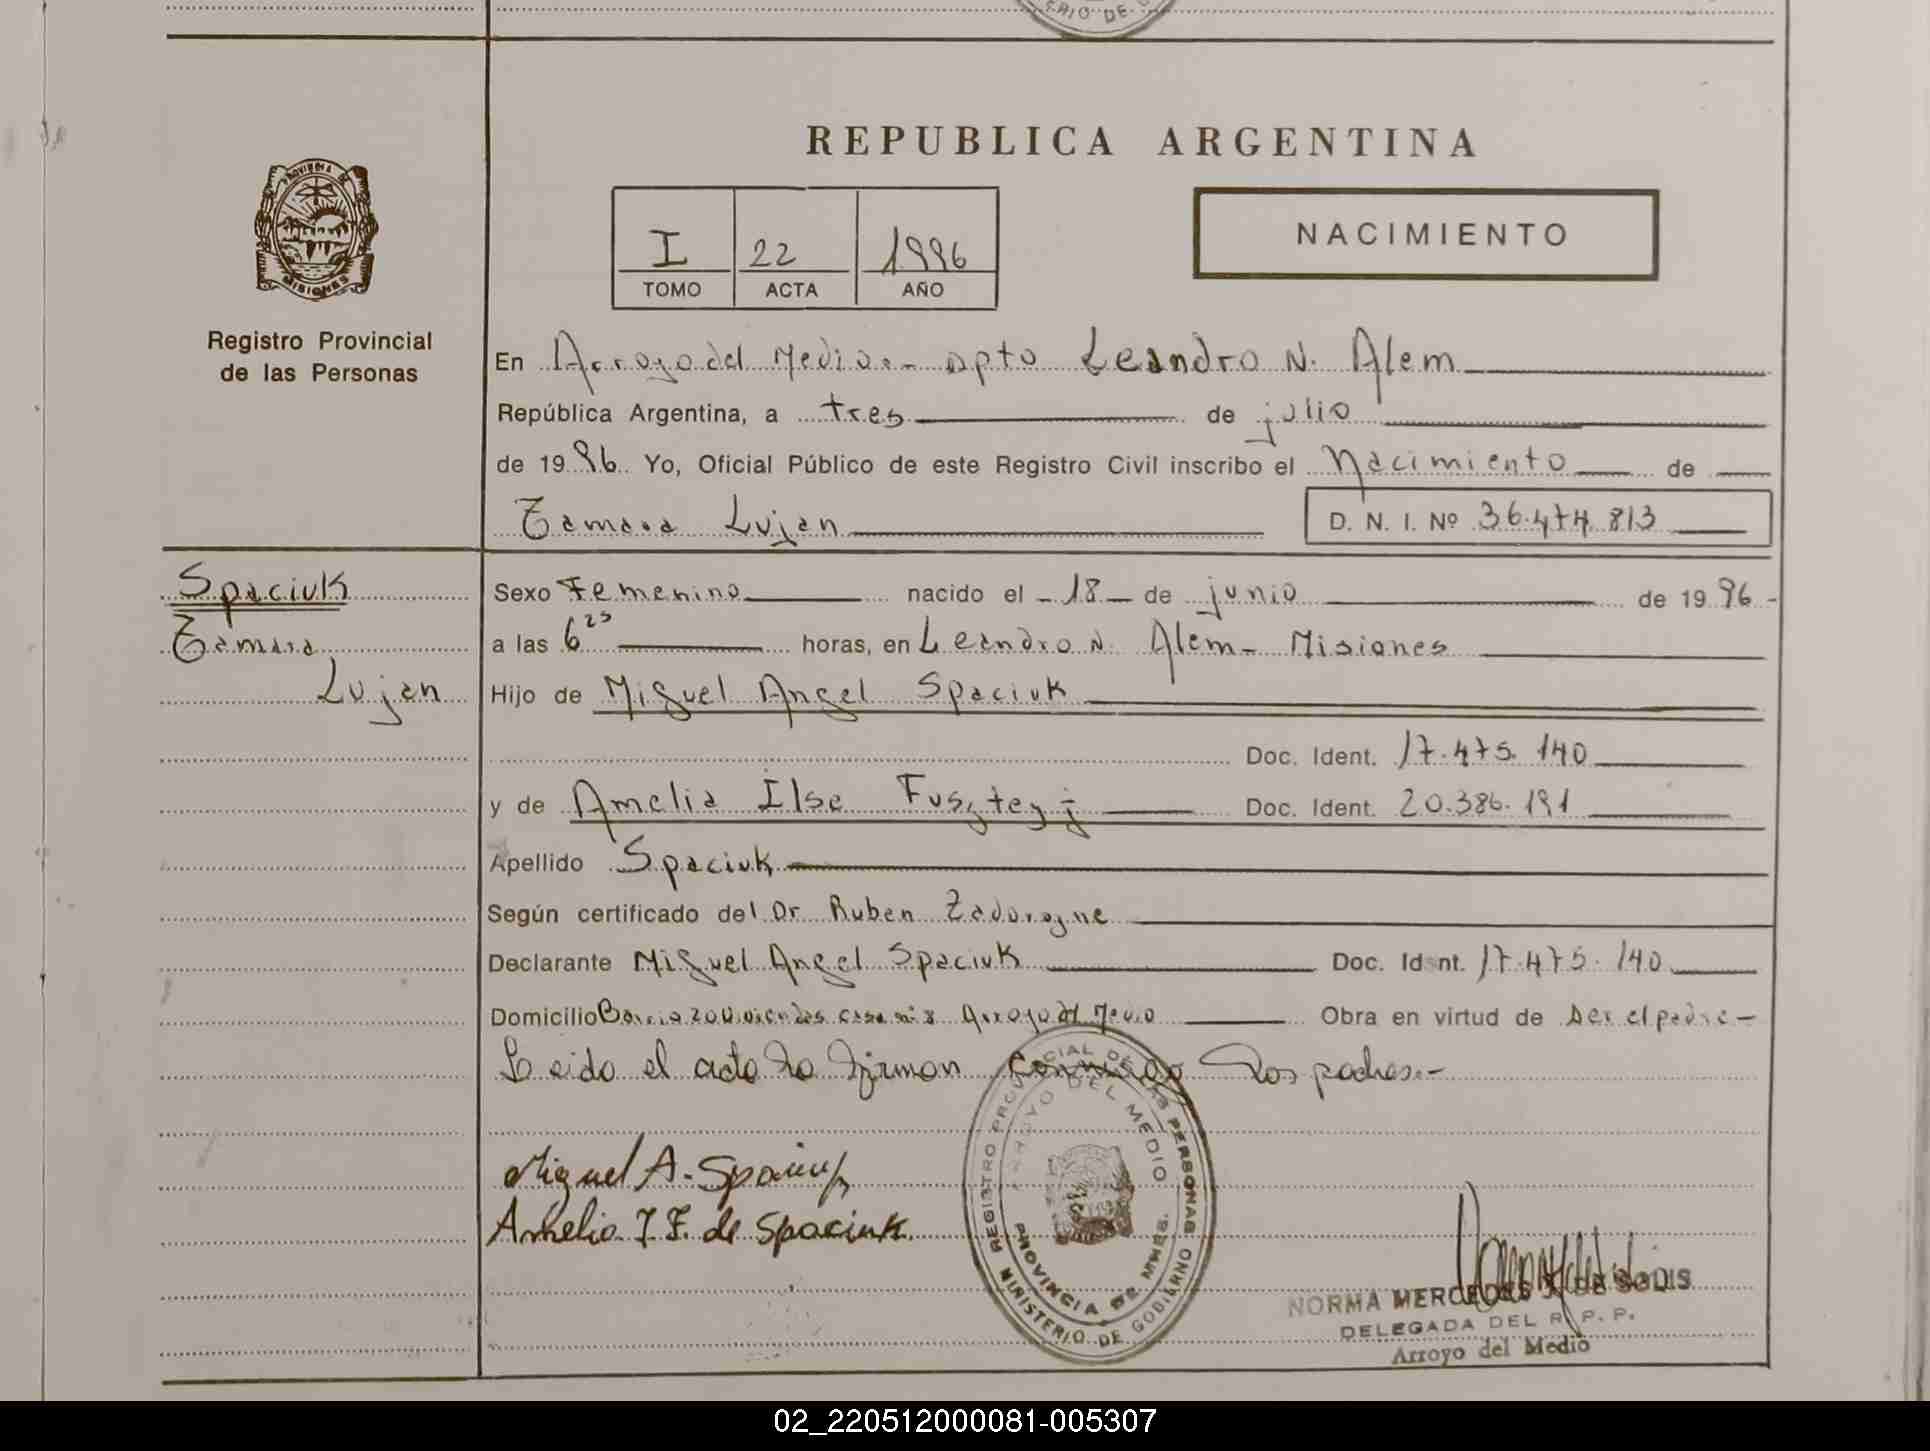 REPUBLICA ARGENTINA
PROVINCIA DE
MISIONES
Registro Provincial
de las Personas
I 22 1996
TOMO ACTA AÑO
NACIMIENTO
En Arroyo del Medio.- Dpto Leandro N. Alem
República Argentina, a tres de julio
de 1996 Yo, Oficial Público de este Registro Civil inscribo el Nacimiento de
Tamara Lujan
D. N. I. Nº 36.474.813
Spaciuk
Tamara
Lujan
Sexo Femenino nacido el -18- de junio de 1996-
a las 6 25 horas, en Leandro N. Alem- Misiones
Hijo de Miguel Angel Spaciuk
Doc. Ident. 17.475.140
y de Amelia Ilse Doc. Ident. 20.386.191
Apellido Spaciuk
Según certificado del Dr Ruben
Declarante Miguel Angel Spaciuk Doc. Ident. 17.475.140
Domicilio Barrio 20 viviendas casa nº 8 Arroyo del Medio Obra en virtud de ser el padre-
Leido el acta la firman conmigo los padres.-
REGISTRO PROVINCIAL DE LAS PERSONAS
ARROYO DEL MEDIO
PROVINCIA DE MNES.
MINISTERIO DE GOBIERNO
Miguel A. Spaciuk
Amelia I. F. de Spaciuk
NORMA MERCEDES DE SODIS
DELEGADA DEL R. P. P.
Arroyo del Medio
02_220512000081-005307